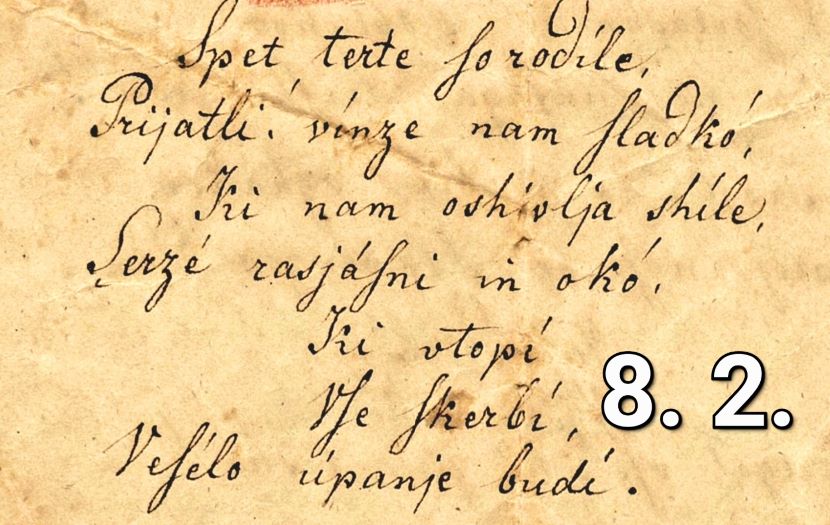 Spet terte ſo rodíle,
Prijatli! vínze nam ſladkó,
Ki nam oshívlja shíle,
Serzé rasjáſni in okó,
Ki vtopí
Vſe ſkerbí,
8. 2.
Veſélo úpanje budí.